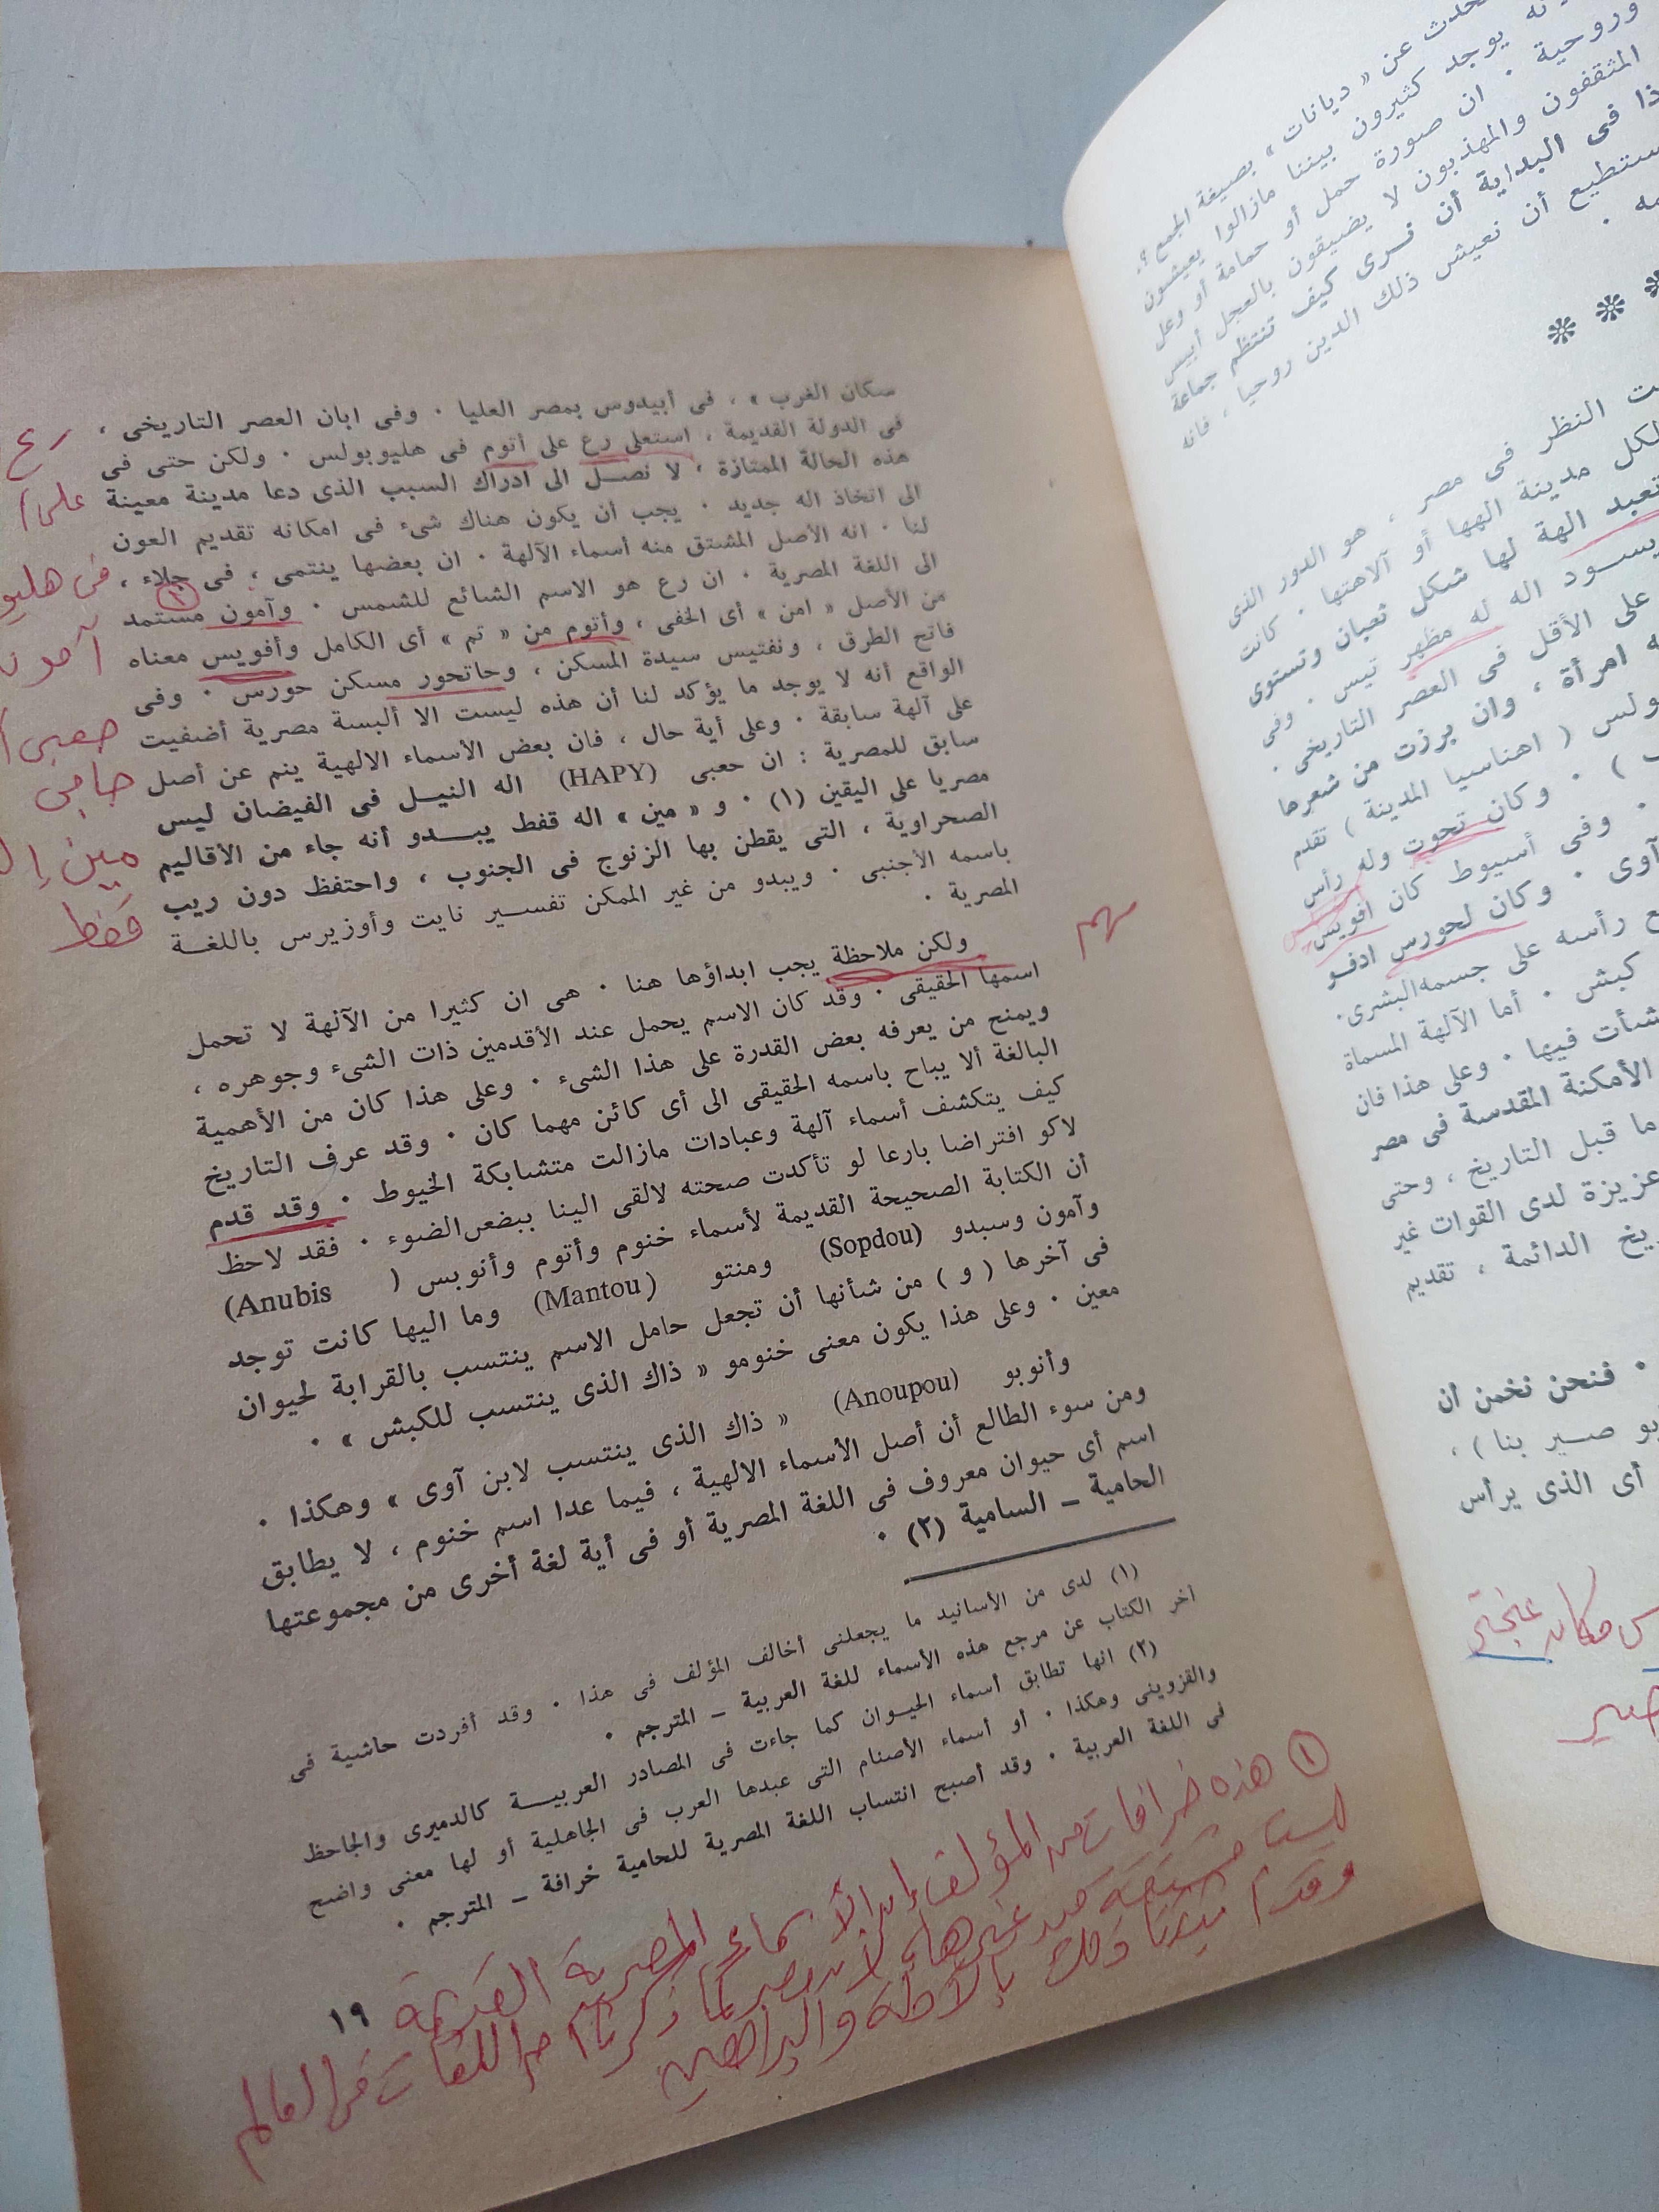 تحدث عن « ديانات » بصيغة الجمع ؟.
يوجد كثيرون بيننا مازالوا يعيشون
وروحية . ان صورة حمل أو حمامة أو وعل
المثقفون والمهذبون لا يضيقون بالعجل أبيس
فى البداية أن نرى كيف تنتظم جماعة
نستطيع أن نعيش ذلك الدين روحيا ، فانه
النظر فى مصر ، هو الدور الذى
لكل مدينة الهها أو آلاهتها . كانت
تعبد الهة لها شكل ثعبان وتستوى
يسود اله له مظهر تيس . وفى
على الأقل فى العصر التاريخى .
امرأة ، وان برزت من شعرها
( اهناسيا المدينة ) تقدم
. وكان تحوت وله رأس
. وفى أسيوط كان افويس
آوى . وكان لحورس ادفو
رأسه على جسمه البشرى .
كبش . أما الآلهة المسماة
نشأت فيها . وعلى هذا فان
الأمكنة المقدسة فى مصر
ما قبل التاريخ ، وحتى
عزيزة لدى القوات غير
الدائمة ، تقديم
. فنحن نخمن أن
صير بنا ) ،
أى الذى يرأس
مكان
سكان الغرب » ، فى أبيدوس بمصر العليا . وفى ابان العصر التاريخى ،
فى الدولة القديمة ، استعلى رع على أتوم فى هليوبولس . ولكن حتى فى
هذه الحالة الممتازة ، لا نصل الى ادراك السبب الذى دعا مدينة معينة
الى اتخاذ اله جديد . يجب أن يكون هناك شىء فى امكانه تقديم العون
لنا . انه الأصل المشتق منه أسماء الآلهة . ان بعضها ينتمى ، فى جلاء ،
الى اللغة المصرية . ان رع هو الاسم الشائع للشمس . وآمون مستمد
من الأصل « امن » أى الخفى ، وأتوم من « تم » أى الكامل وأفويس معناه
فاتح الطرق ، ونفتيس سيدة المسكن ، وحاتحور مسكن حورس . وفى
الواقع أنه لا يوجد ما يؤكد لنا أن هذه ليست الا ألبسة مصرية أضفيت
على آلهة سابقة . وعلى أية حال ، فان بعض الأسماء الالهية ينم عن أصل
سابق للمصرية : ان حعبى (HAPY) اله النيل فى الفيضان ليس
مصريا على اليقين (١) . و « مين » اله قفط يبدو أنه جاء من الأقاليم
الصحراوية ، التى يقطن بها الزنوج فى الجنوب ، واحتفظ دون ريب
باسمه الأجنبى . ويبدو من غير الممكن تفسير نايت وأوزيرس باللغة
المصرية .
ولكن ملاحظة يجب ابداؤها هنا . هى ان كثيرا من الآلهة لا تحمل
اسمها الحقيقى . وقد كان الاسم يحمل عند الأقدمين ذات الشىء وجوهره ،
ويمنح من يعرفه بعض القدرة على هذا الشىء . وعلى هذا كان من الأهمية
البالغة ألا يباح باسمه الحقيقى الى أى كائن مهما كان . وقد عرف التاريخ
كيف يتكشف أسماء آلهة وعبادات مازالت متشابكة الخيوط . وقد قدم
لاكو افتراضا بارعا لو تأكدت صحته لالقى الينا ببضعر الضوء . فقد لاحظ
أن الكتابة الصحيحة القديمة لأسماء خنوم وأتوم وأنوبس ( Anubis)
وآمون وسبدو (Sopdou) ومنتو (Mantou) وما اليها كانت توجد
فى آخرها ( و ) من شأنها أن تجعل حامل الاسم ينتسب بالقرابة لحيوان
معين . وعلى هذا يكون معنى خنومو « ذاك الذى ينتسب للكبش » .
وأنوبو (Anoupou) « ذاك الذى ينتسب لابن آوى » وهكذا .
ومن سوء الطالع أن أصل الأسماء الالهية ، فيما عدا اسم خنوم ، لا يطابق
اسم أى حيوان معروف فى اللغة المصرية أو فى أية لغة أخرى من مجموعتها
الحامية – السامية (٢) .
(١) لدى من الأسانيد ما يجعلنى أخالف المؤلف فى هذا . وقد أفردت حاشية فى
آخر الكتاب عن مرجع هذه الأسماء للغة العربية – المترجم .
(٢) انها تطابق أسماء الحيوان كما جاءت فى المصادر العربية كالدميرى والجاحظ
والقزوينى وهكذا . أو أسماء الأصنام التى عبدها العرب فى الجاهلية أو لها معنى واضح
فى اللغة العربية . وقد أصبح انتساب اللغة المصرية للحامية خرافة – المترجم .
١٩
رع
على
فى هليو
آمون
حعبى
حابى
مين إل
قفط
مهم
١ هذه خرافات من المؤلف الأسماء المصرية القديمة
ليست مشتقة من غيرها من اللغات فى العالم
وقدم بالأدلة والبراهين